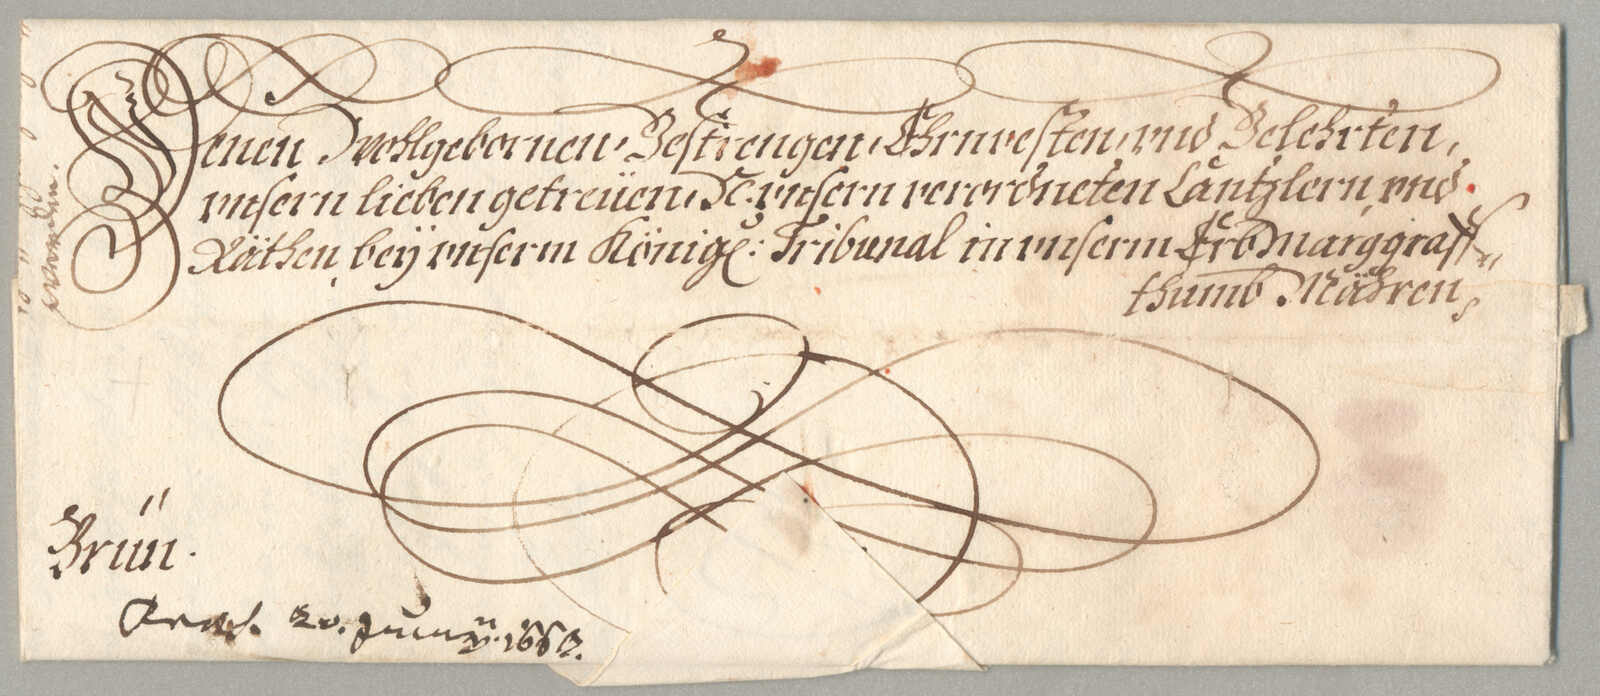 Denen Wohlgebornen, Gestrengen, Ehrnvesten, vnd Gelehrten,
vnsern lieben getreüen, N: vnsern verordneten Cantzlern, vnd
Räthen, beÿ vnserm Königl: Tribunal in vnserm Erbmarggraff-
thumb Mähren,
Brün.
20. Junÿ. 1667.